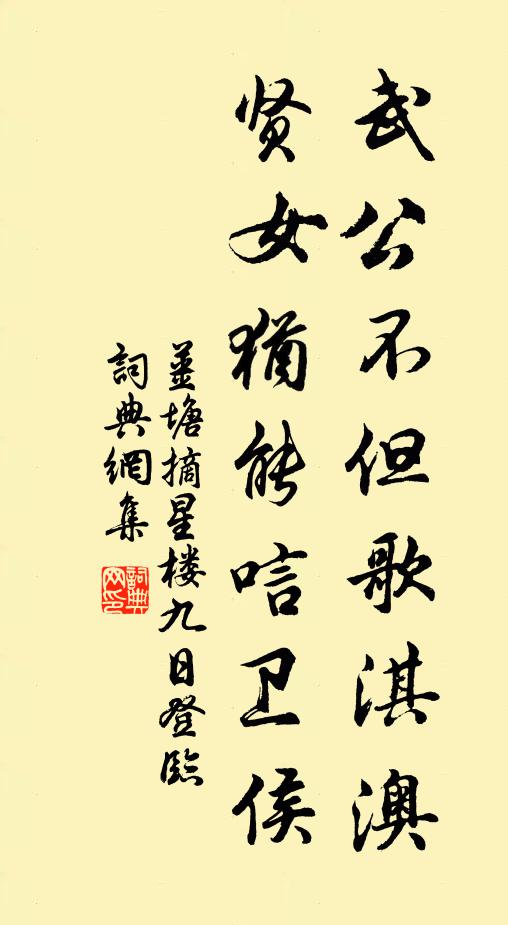 武公不但歌淇澳
贤女犹能唁卫侯
姜塘摘星楼九日登臨
詞典網集
詞典网印